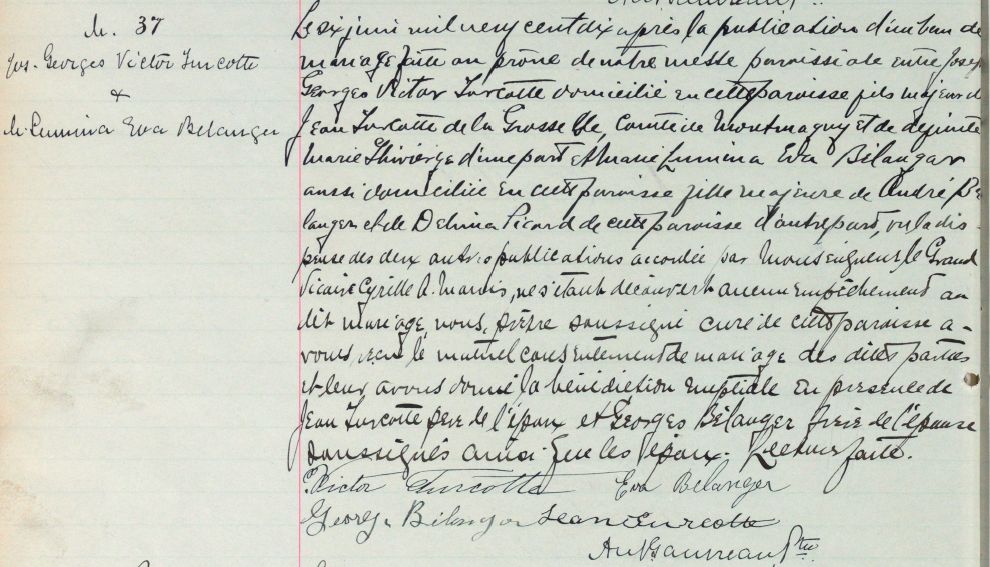 M. 37
Jos. Georges Victor Turcotte
&
M. Lumina Eva Bélanger
Le six juin mil neuf cent dix après la publication d'un ban de
mariage faite au prône de notre messe paroissiale entre Joseph
Georges Victor Turcotte domicilié en cette paroisse fils majeur de
Jean Turcotte de la Grosse Ile, Comté de Montmagny et de défunte
Marie Thivierge d'une part et Marie Lumina Eva Bélanger
aussi domiciliée en cette paroisse fille majeure de André Bé
langer et de Delvina Picard de cette paroisse d'autre part, vu la dis-
pense des deux autres publications accordée par Monseigneur le Grand
Vicaire Cyrille A. Marois, ne s'étant découvert aucun empêchement au
dit mariage, nous, prêtre soussigné curé de cette paroisse a-
vons reçu le mutuel consentement de mariage des dites parties
et leur avons donné la bénédiction nuptiale en présence de
Jean Turcotte père de l'époux et Georges Bélanger frère de l'épouse
soussignés ainsi que les époux. Lecture faite.
Victor Turcotte Eva Bélanger
Georges Bélanger Jean Turcotte
Gauvreau Ptre